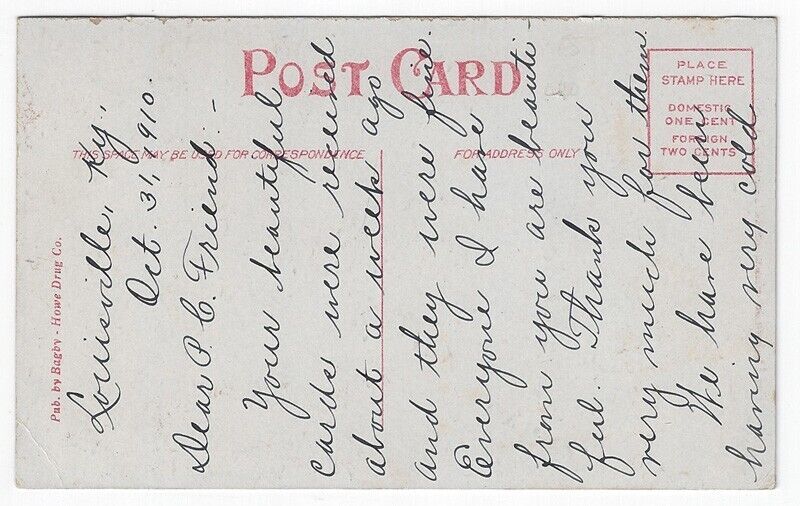 POST CARD
THIS SPACE MAY BE USED FOR CORRESPONDENCE
FOR ADDRESS ONLY
PLACE
STAMP HERE
DOMESTIC
ONE CENT
FOREIGN
TWO CENTS
Pub. by Bagby - Howe Drug Co.
Louisville, Ky.,
Oct. 31, 1910.
Dear P. C. Friend:-
Your beautiful
cards were received
about a week ago
and they were fine.
Everyone I have
from you are beauti-
ful. Thank you
very much for them.
We have been
having very cold